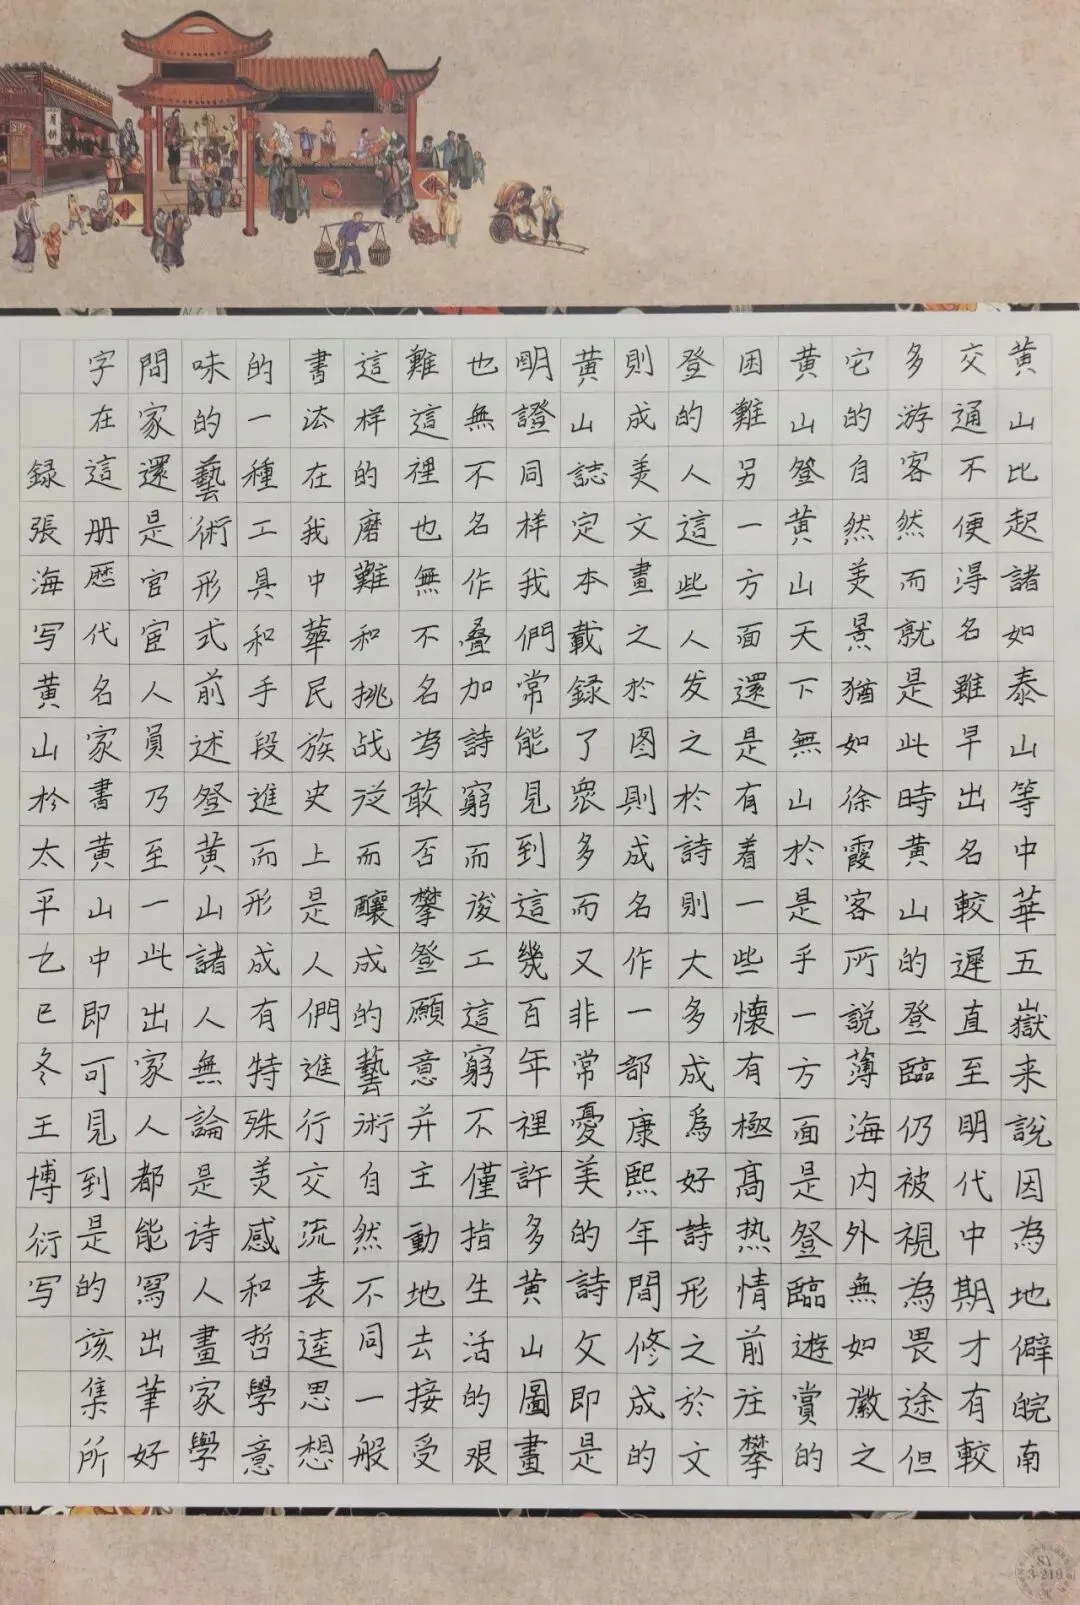 黄山比起諸如泰山等中華五嶽来說因為地僻皖南
交通不便淂名雖早出名較遲直至明代中期才有較
多游客然而就是此時黄山的登臨仍被視為畏途但
它的自然美景猶如徐霞客所說薄海内外無如徽之
黄山登黄山天下無山於是乎一方面是登臨遊賞的
困難另一方面還是有着一些懷有極高热情前往攀
登的人這些人发之於詩則大多成為好詩形之於文
則成美文畫之於图則成名作一部康熙年間修成的
黄山誌定本載録了眾多而又非常憂美的詩文即是
明證同样我們常能見到這幾百年裡許多黄山圖畫
也無不名作叠加詩窮而後工這窮不僅指生活的艰
難這裡也無不名為敢否攀登願意并主動地去接受
這样的磨難和挑战从而釀成的藝術自然不同一般
書法在我中華民族史上是人們進行交流表達思想
的一種工具和手段進而形成有特殊美感和哲學意
味的藝術形式前述登黄山諸人無論是诗人畫家學
問家還是官宦人員乃至一此出家人都能寫出筆好
字在這册歷代名家書黄山中即可見到是的該集所
録張海写黄山於太平乙巳冬王博衍写
月餅
SY
3-219